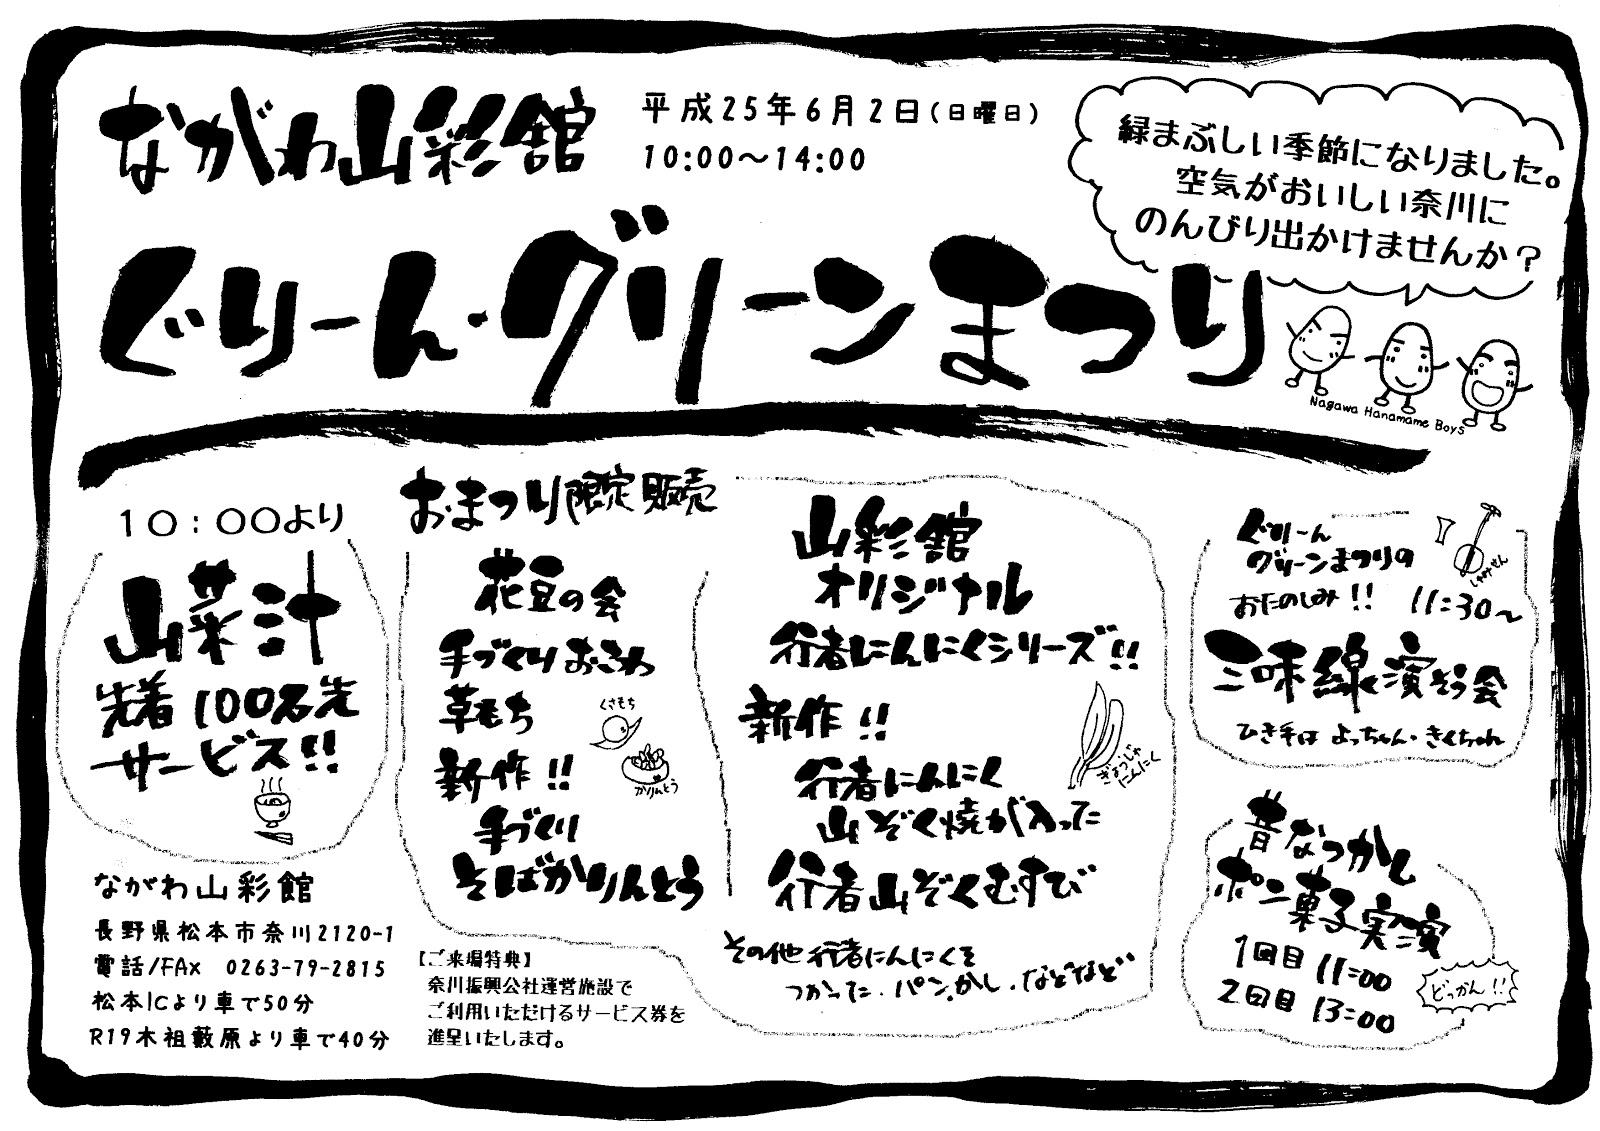 ながわ山彩館
平成25年6月2日(日曜日)
10:00～14:00
緑まぶしい季節になりました。
空気がおいしい奈川に
のんびり出かけませんか？
ぐりーん・グリーンまつり
Nagawa Hanamame Boys
10：00より
山菜汁
先着100名先
サービス!!
おまつり限定販売
花豆の会
手づくりおこわ
草もち
くさもち
新作!!
かりんとう
手づくり
そばかりんとう
山彩館
オリジナル
行者にんにくシリーズ!!
新作!!
ぎょうじゃ
にんにく
行者にんにく
山ぞく焼が入った
行者山ぞくむすび
その他行者にんにくを
つかった・パン・かし・などなど
ぐりーん
グリーンまつりの
おたのしみ!! 11:30～
しゃみせん
三味線演そう会
ひき手は よっちゃん・きくちゃん
昔なつかし
ポン菓子実演
1回目 11:00
2回目 13:00
どっかん!!
ながわ山彩館
長野県松本市奈川2120-1
電話/FAx 0263-79-2815
松本ICより車で50分
R19木祖藪原より車で40分
【ご来場特典】
奈川振興公社運営施設で
ご利用いただけるサービス券を
進呈いたします。